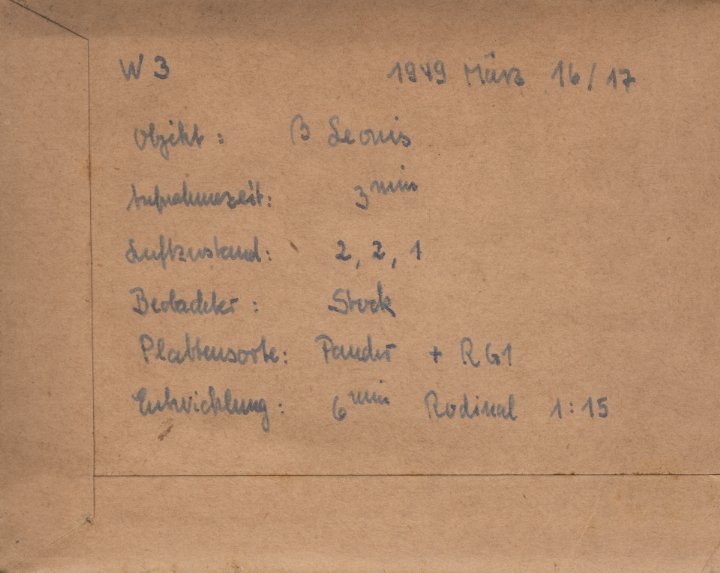 W 3 1949 März 16/17
Objekt: β Leonis
Aufnahmezeit: 3 min
Luftzustand: 2, 2, 1
Beobachter: Stock
Plattensorte: Panchr + RG1
Entwicklung: 6 min Rodinal 1:15